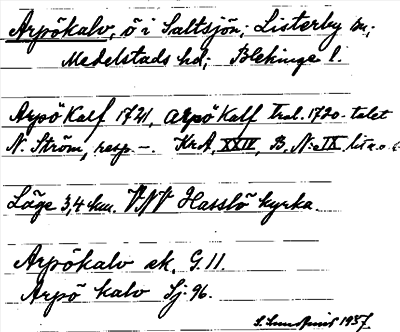 Arpökalv, ö i Saltsjön; Listerby sn;
Medelstads hd; Blekinge l.
Arpö Kalf 1721, Arpö Kalf trol. 1720-talet
N. Ström, resp. –. KrA, XXII, B, N:o IX
Läge 3,4 km. VNV Hasslö kyrka.
Arpökalv ek. G. 11.
Arpö kalv Sj. 96.
1937